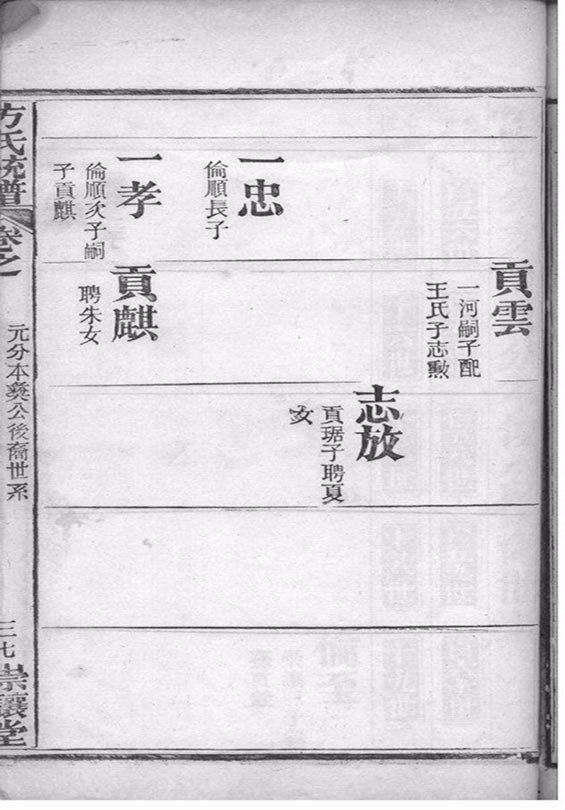 貢雲
一河嗣子配
王氏子志勲
志放
貢琚子聘夏
女
一忠
倫順長子
一孝
倫順次子嗣
子貢麒
貢麒
聘朱女
方氏統譜
卷之
元分本㷼公後裔世系
三七
崇讓堂